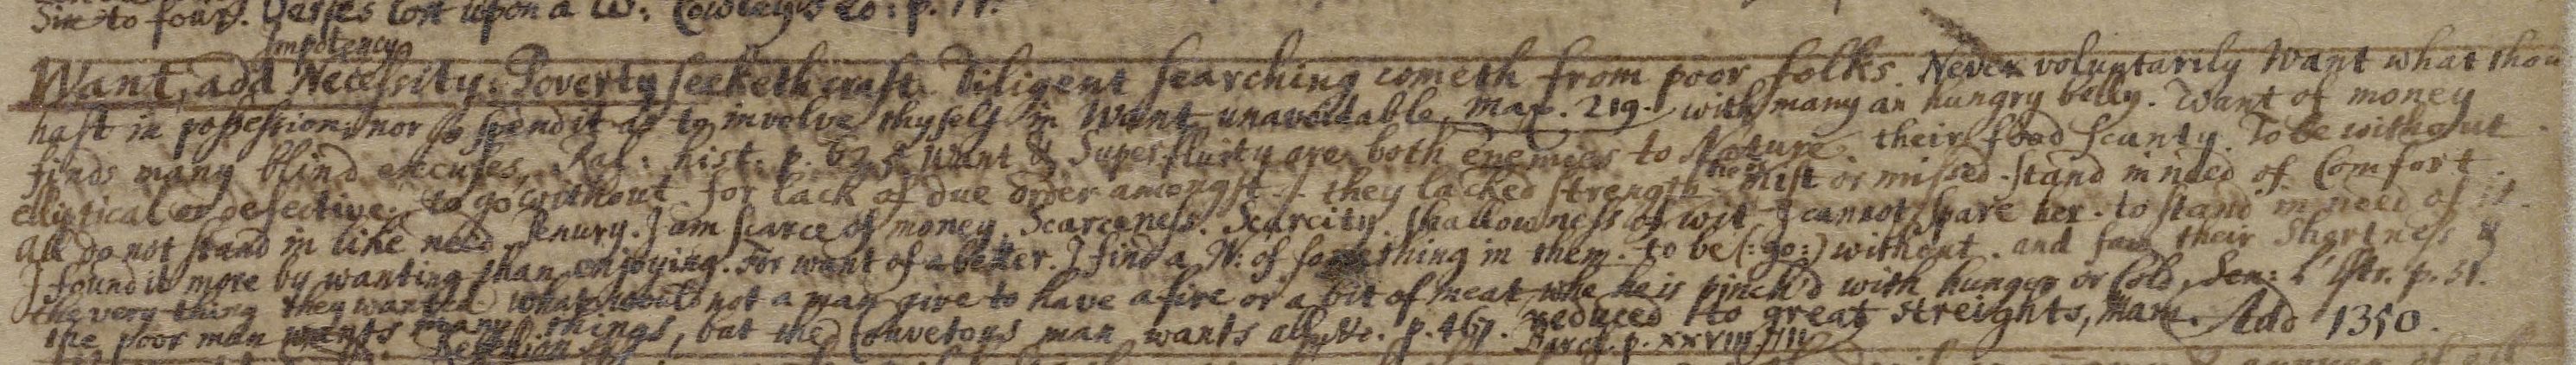 Sin to four. Verses lost upon a W: Cowley's p. 11.
Impotency
Want, add Necessity: Poverty seeketh craft. Diligent searching cometh from poor folks. Never voluntarily Want what thou
hast in possession; nor so spend it as to involve thyself in Want unavoidable, Man. 219. with many an hungry belly. Want of money
finds many blind excuses, Ral: hist: p. 625. Want & Superfluity are both enemies to Nature. their food scanty. To be without
elliptical or defective. to go without. for lack of due order amongst. they lacked strength. mist or missed. stand in need of Comfort.
All do not stand in like need. Penury. I am scarce of money. Scarceness. Scarcity. Shallowness of wit. I cannot spare her. to stand in need of it.
I found it more by wanting than enjoying. For want of a better. I find a N: of something in them. to be (: go:) without. and saw their Shortness &
the very thing they wanted. what would not a man give to have a fire or a bit of meat, whe he is pinch'd with hunger or Cold, Sen: L'Estr. p. 51.
the poor man wants many things, but the Covetous man wants all, &c. p. 467. reduced to great streights, Mam. Add 1350.
p. xxviii